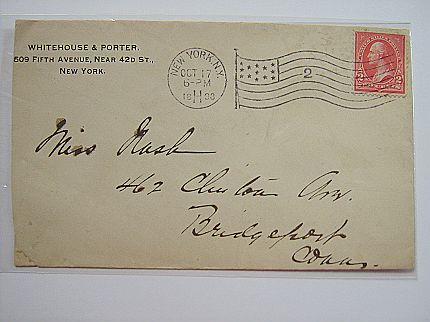 WHITEHOUSE & PORTER,
509 FIFTH AVENUE, NEAR 42D ST.,
NEW YORK.
NEW YORK, N.Y.
OCT 17
6-PM
2
2
Miss Nash
462 Clinton Ave.
Bridgeport
Conn.